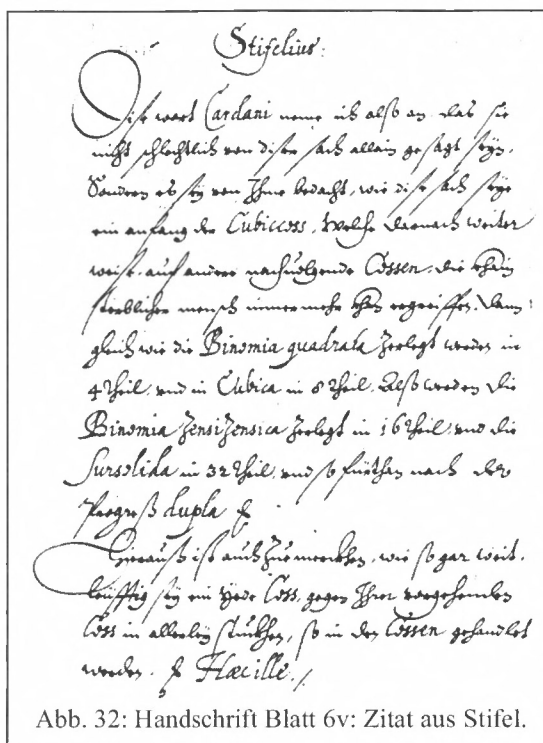 Stifelius:
Dise wort Cardani neme ich alß an das sie
nicht schlechtlich von diser sach allain gesagt seyn,
Sondern es sey von Ihme bedacht, wie dise sach seye
ein anfang der Cubiccoss, Welche darnach weiter
weist, auf andere nachuolgende Cossen, die khain
sterblicher mensch immermehr khan ergreiffen, dann
gleich wie die Binomia quadrata Zerlegt werden in
4 theil, vnd in Cubica in 8 theil, Alß werden die
Binomia ZensiZensica Zerlegt in 16 theil, vnd die
Sursolida in 32 theil, vnd so fürthan nach der
Progreß dupla
Hierauß ist auch Zuemerckhen, wie so gar weit,
leufftig sey ein yede Coss, gegen Ihrer vorgehenden
Coss in allerley stuckhen, so in den Cossen gehandlet
werden. Hæcille.
Abb. 32: Handschrift Blatt 6v: Zitat aus Stifel.